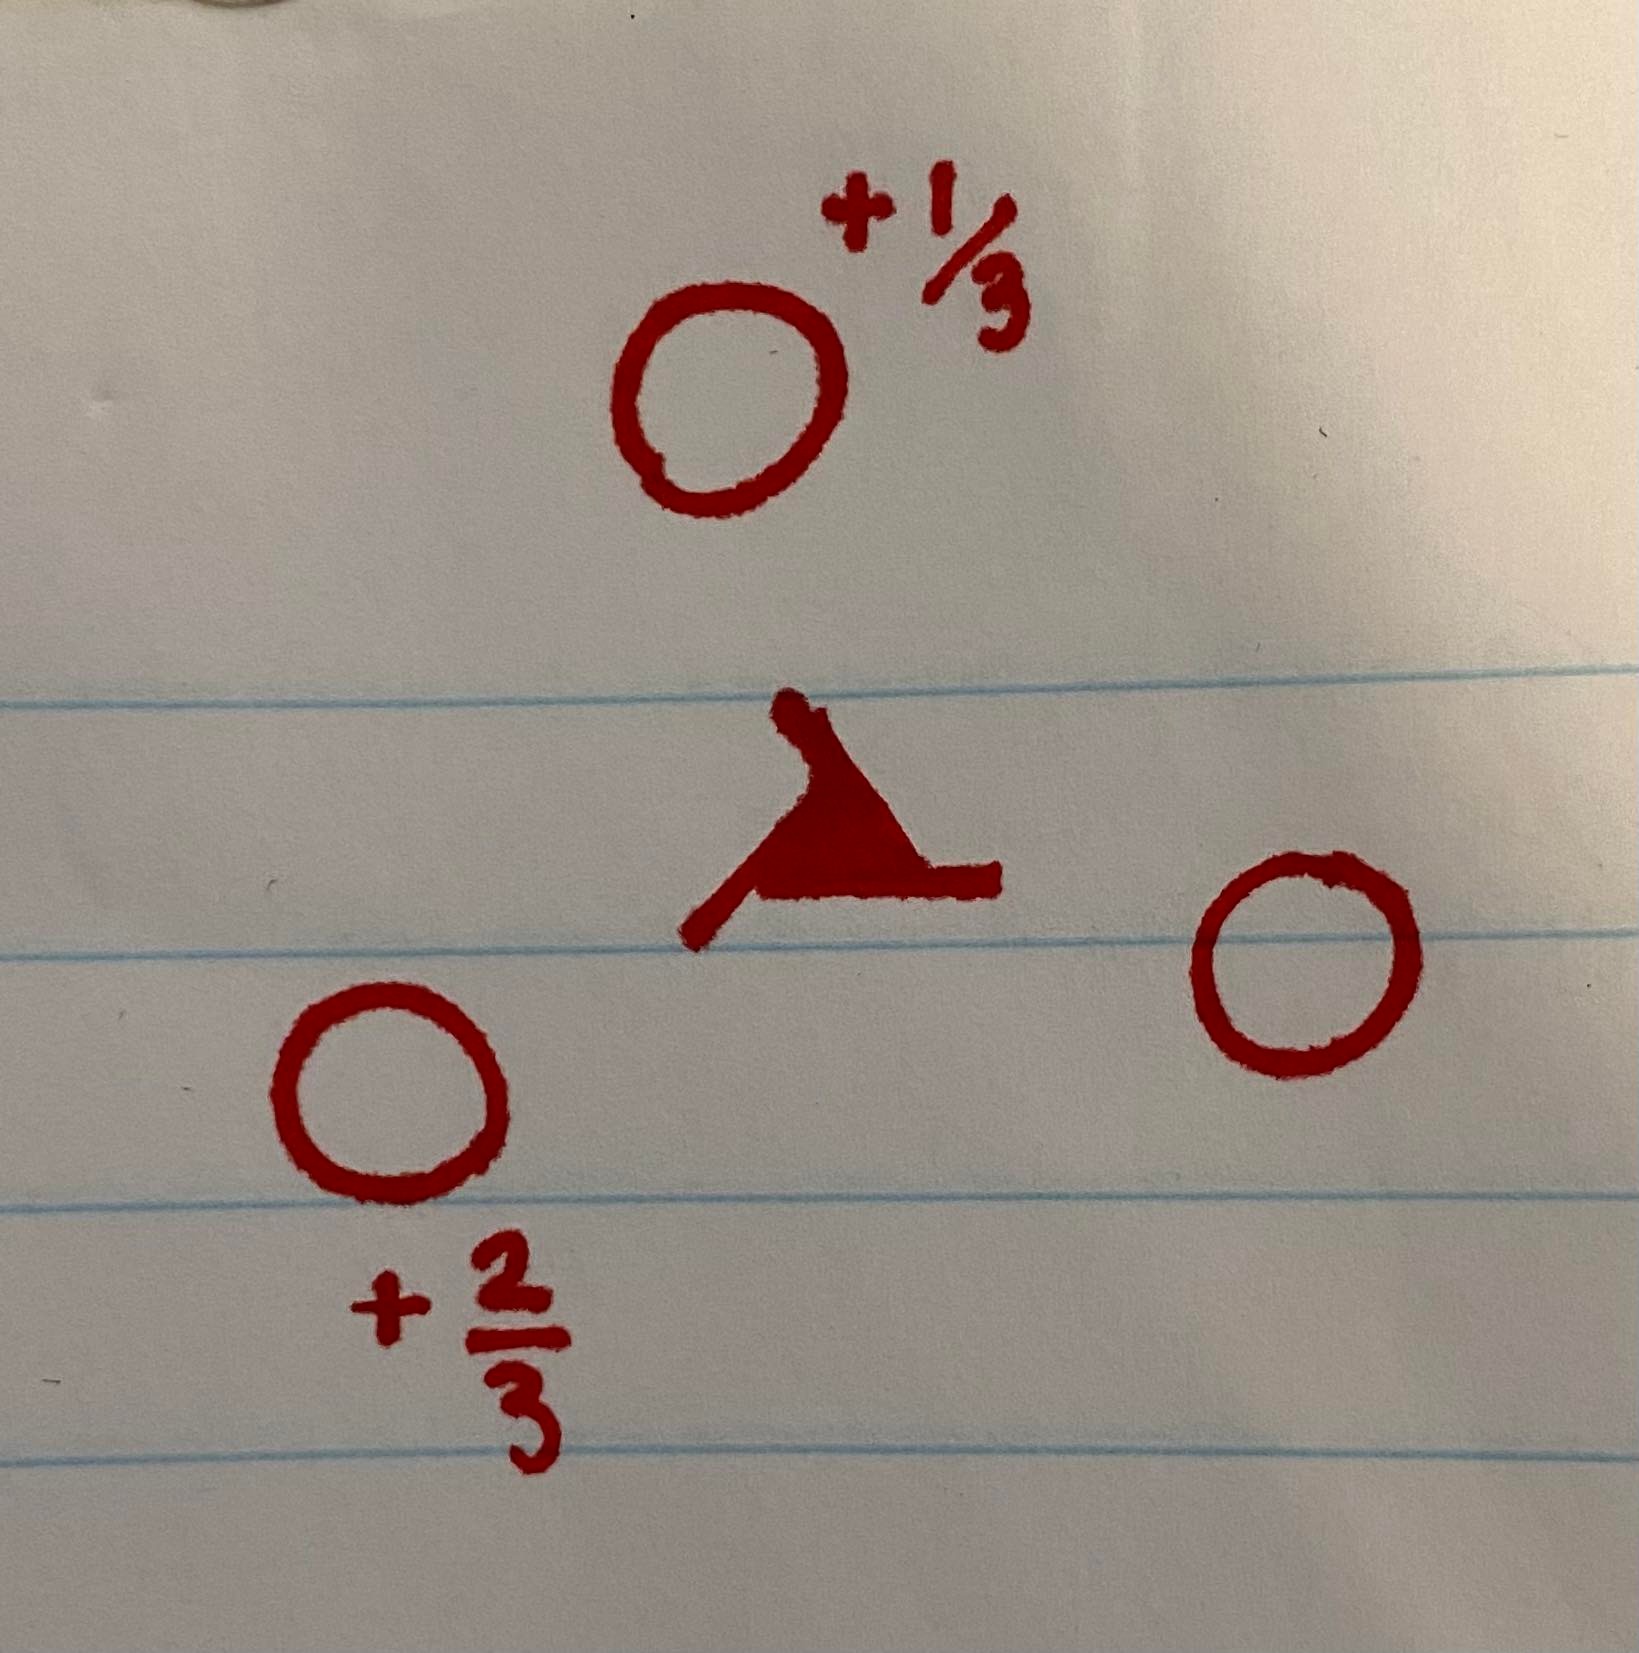 + 1/3
+ 2/3